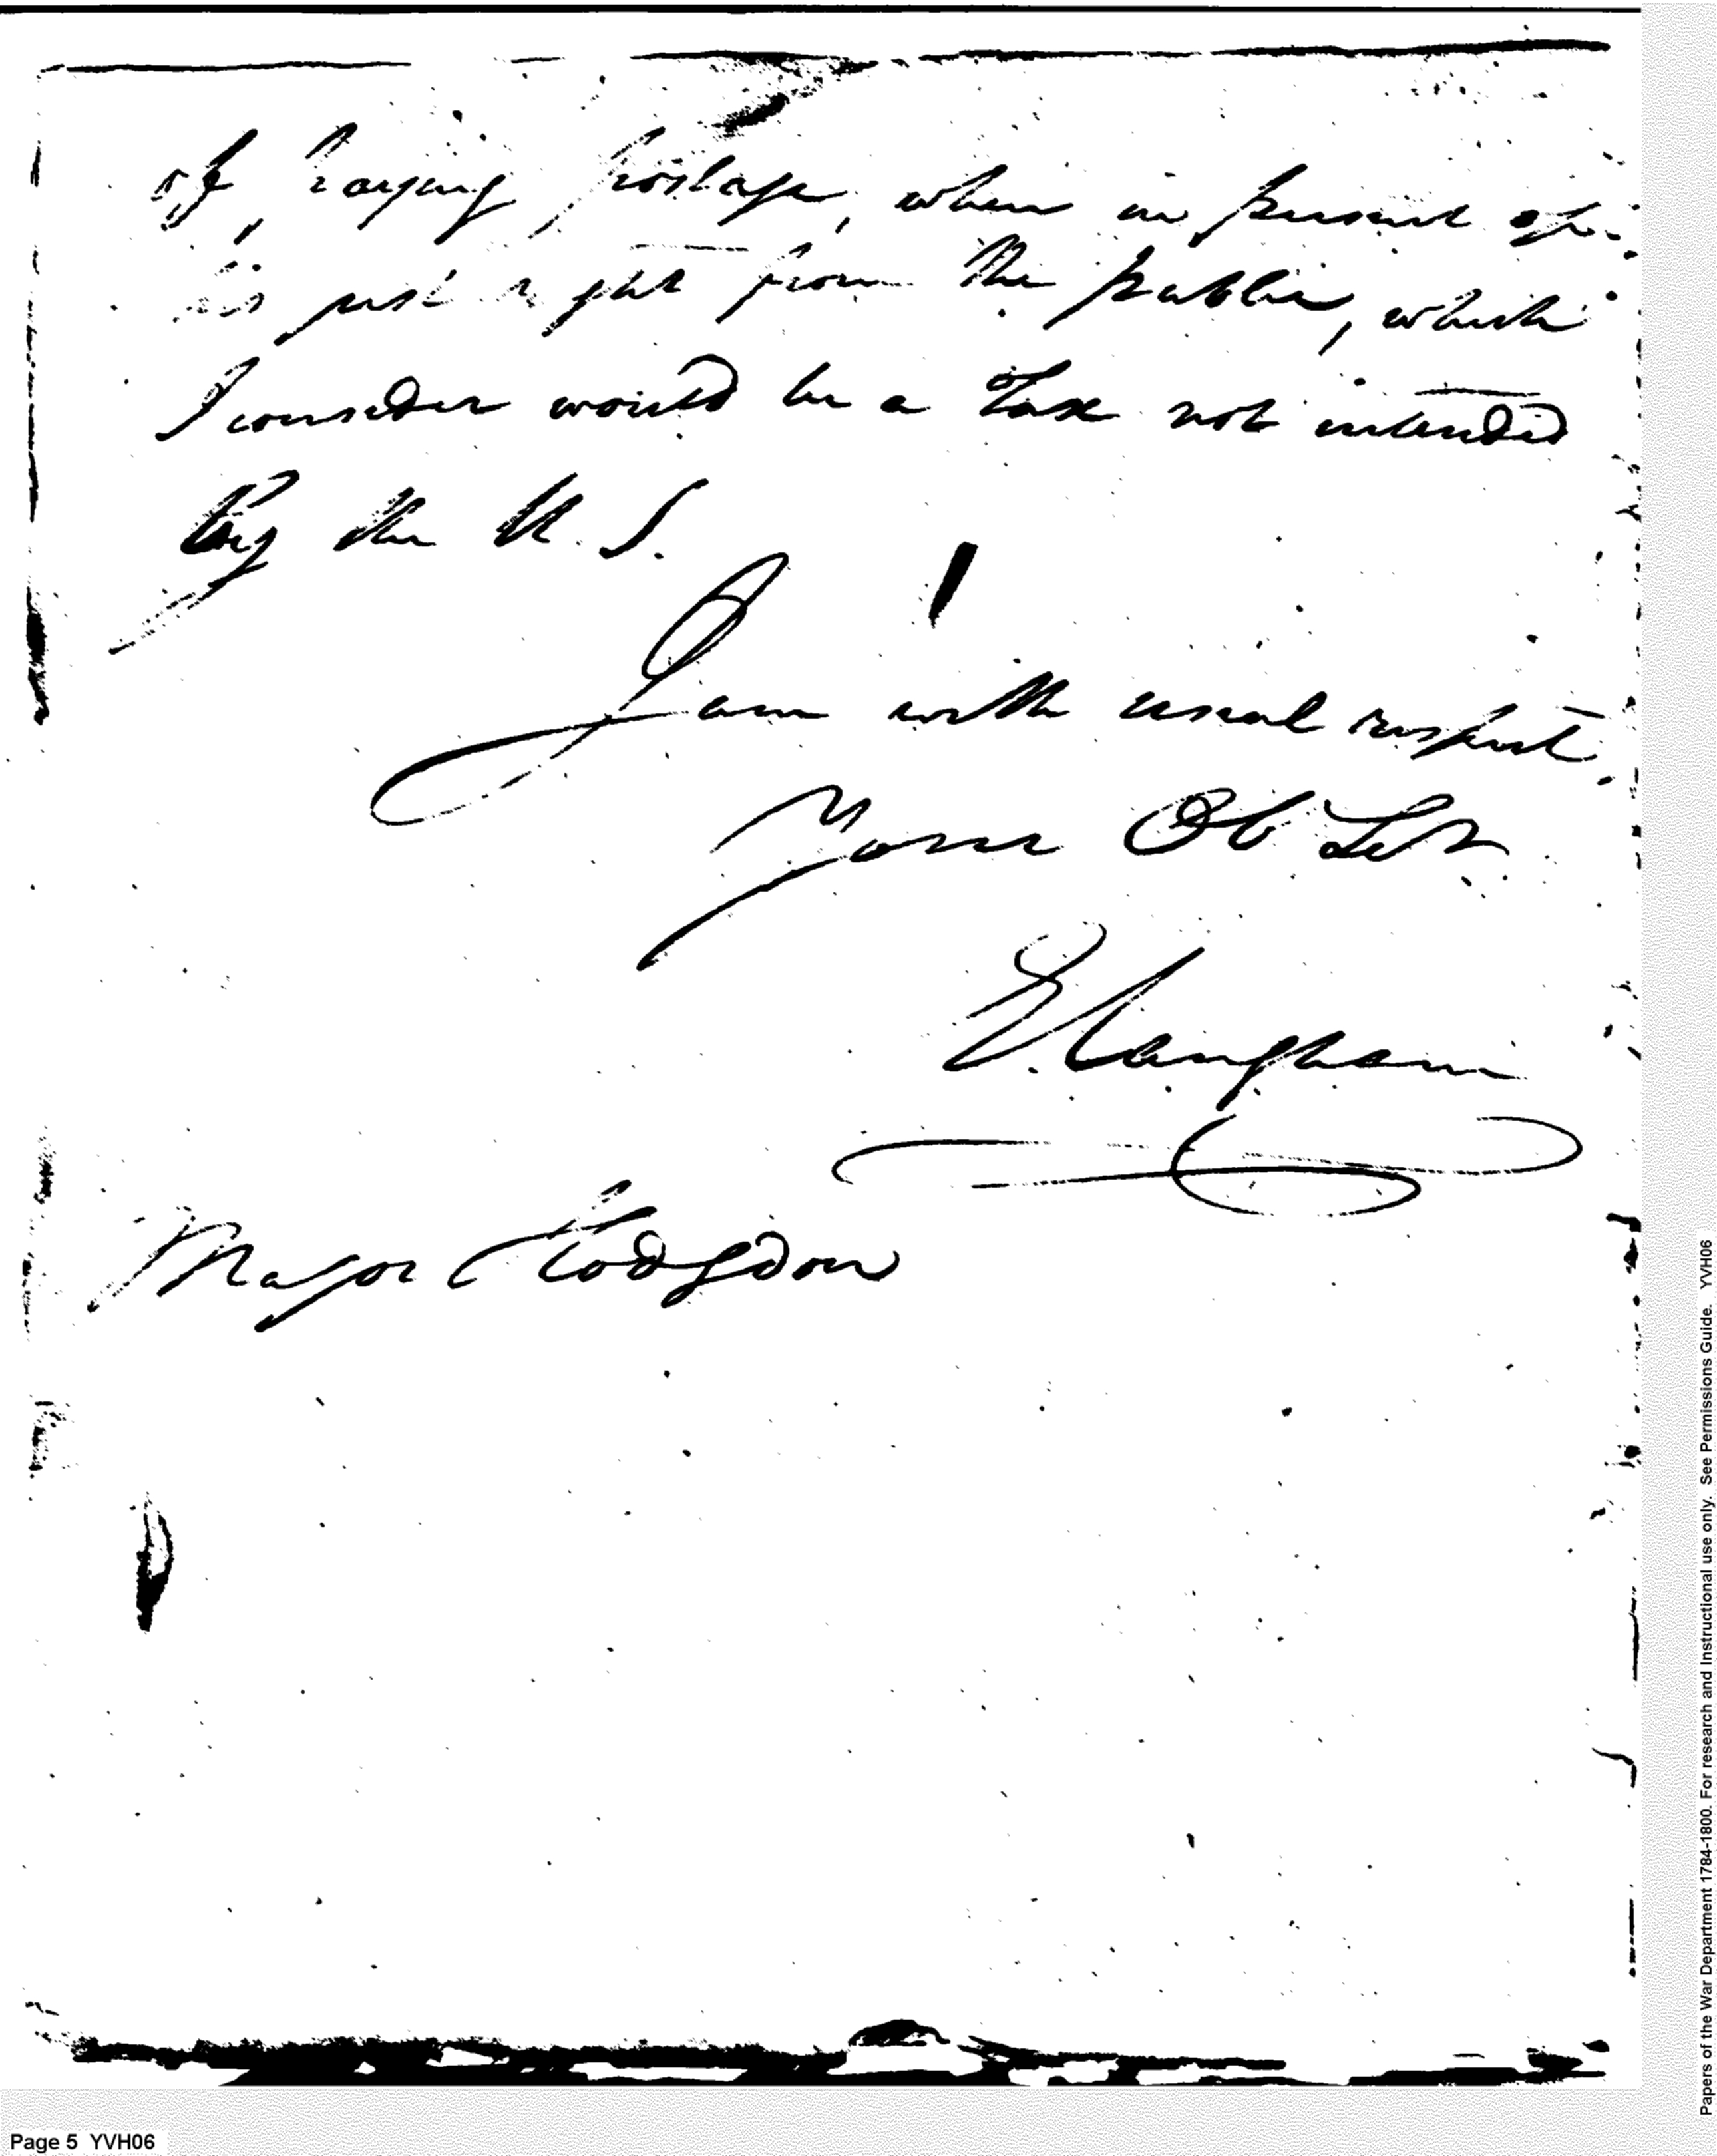 of paying postage, when in pursuit of
his just right from the public, which
I consider would be a Tax not intended
By the U. S.
I am with usual respect.
Your Ob Sert
E. Langham
Major Hodgdon
Papers of the War Department 1784-1800. For research and Instructional use only. See Permissions Guide. YVH06
Page 5 YVH06